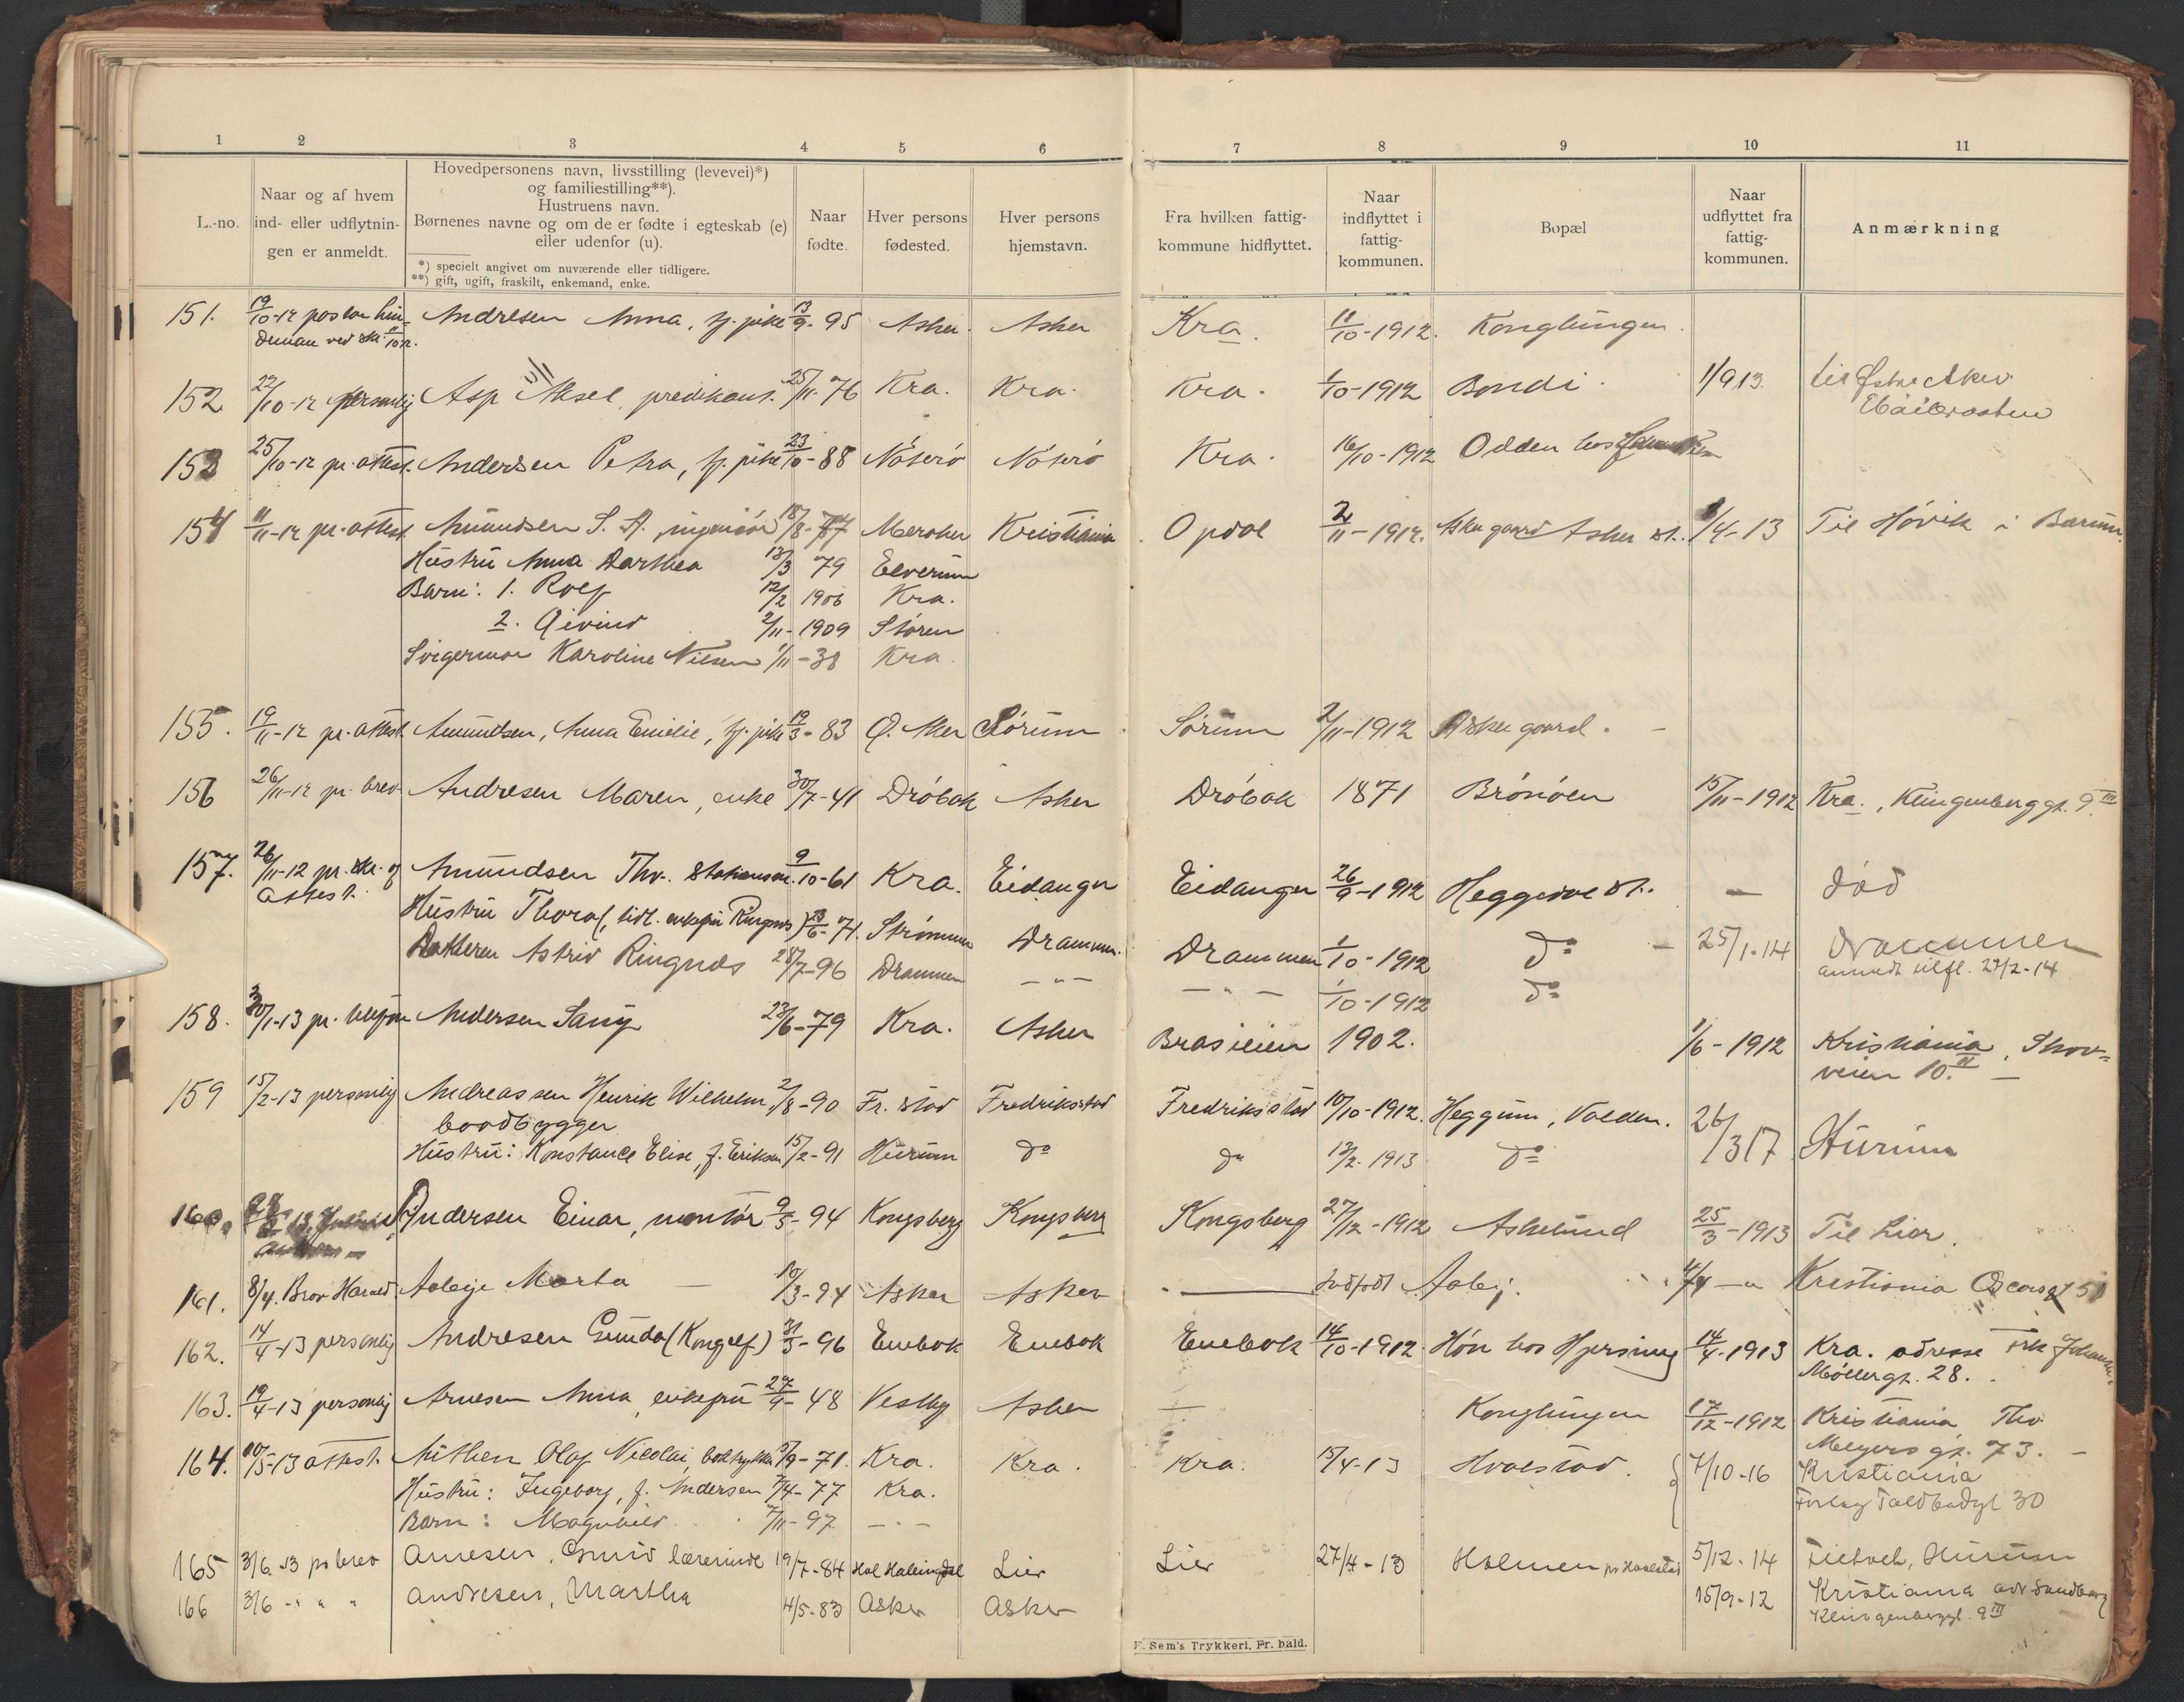 1 2 3 4 5 6 7 8 9 10 11
L.-no.
Naar og af hvem
ind- eller udflytnin-
gen er anmeldt.
Hovedpersonens navn, livsstilling (levevei)*)
og familiestilling**).
Hustruens navn.
Børnenes navne og om de er fødte i egteskab (e)
eller udenfor (u).
*) specielt angivet om nuværende eller tidligere.
**) gift, ugift, fraskilt, enkemand, enke.
Naar
fødte.
Hver persons
fødested.
Hver persons
hjemstavn.
Fra hvilken fattig-
kommune hidflyttet.
Naar
indflyttet i
fattig-
kommunen.
Bopæl
Naar
udflyttet fra
fattig-
kommunen.
Anmærkning
151. 19/10-12 Andresen Anna, tj. pike 13/9-95 Asker Asker Kra. 11/10-1912. Konglungen
152 22/10-12 personlig Asp Aksel, predikant. 25/11-76 Kra. Kra. Kra. 1/10-1912 Bondi 1/9 13. til Østre Aker
153 25/10-12 pr. attest. Andersen Petra, tj. pike 23/10-88 Nøterø Nøterø Kra. 16/10-1912 Odden hos
154 11/11-12 pr. attest Amundsen S. A. ingeniør 18/8-77 Meraker Kristiania Opdal 2/11-1912. Asker gaard Asker st. 1/4-13 Til Høvik i Bærum.
Hustru Anna Darthea 13/3 79 Elverum
Barn: 1. Rolf 12/2 1906 Kra.
2. Øivind 2/11-1909 Støren
Svigermor Karoline Nilsen 1/11-38 Kra.
155. 19/11-12 pr. attest. Amundsen, Anna Emilie, tj. pike 19/3-83 Ø. Aker Sørum Sørum 2/11-1912 Asker gaard.
156 26/11-12 pr. brev Andresen Maren, enke 30/7-41 Drøbak Asker Drøbak 1871 Brønøen 15/11-1912 Kra., Klingenberggt. 9 III
157. 26/11-12 pr. skr. og Amundsen Thv. Stationsm. 9/10-61 Kra. Eidanger Eidanger 26/9-1912 Heggedal st. — død
attest.
Hustru Thora (, tidl. enkefru Ringnes) 23/6-71. Strømmen Drammen. Drammen 1/10-1912 do 25/1-14 Drammen
Datteren Astrid Ringnes 28/7-96 Drammen — " — — " — 1/10-1912 do anmeldt tilfl. 24/2-14
158. 30/1-13 pr. telefon Andersen Sany 23/6-79 Kra. Asker Brasilien 1902. 1/6-1912 Kristiania, Skov-
veien 10. II
159 15/2-13 personlig Andreassen Henrik Wilhelm, 2/8-90 Fr.stad Fredriksstad Fredriksstad 10/10-1912. Heggum, Valden. 26/3 17 Hurum
baadbygger
Hustru: Konstance Elise, f. Eriksen 15/2-91 Hurum do do 13/2-1913 do
160. Andersen Einar, montør 9/5-94 Kongsberg Kongsberg Kongsberg 27/12-1912 Askelund 25/3-1913 Til Lier.
161. 8/4. Bror Harald. Aabye Marta 10/3-94 Asker Asker — Indfødt Aaby. 4/4 — " Kristiania Oscarsgt 50
162. 14/4-13 personlig Andresen Gunda (Kongelf) 31/3-96 Enebak Enebak Enebak 14/10-1912. Høn hos Hjersing 14/4-1913 Kra. adresse frk Johansen
Møllergt. 28.
163. 19/4-13 personlig Arnesen Anna, enkefru 27/4-48 Vestby Asker — Konglungen 17/12-1912 Kristiania Thv.
Meyersgt. 73.
164. 10/5-13 attest. Olaf Nicolai, 5/9-71. Kra. Kra. Kra. 15/4-13 Hvalstad. 7/10-16 Kristiania
Hustru: Ingeborg, f. Andersen 7/4-77 Kra. Toldbodgt 30
Barn: Magnhild 7/11-97 — " —
165 3/6-13 pr brev Arnesen, Gunvd lærerinde 19/7-84 Hol Hallingdal Lier Lier 27/4-13 Holmen pr Hvalstad 5/12-14 Filtvet, Hurum
166 3/6 - " " " Andresen, Martha 4/5-83 Asker Asker 15/9-12 Kristiania adr Sandberg
Klingenberggt. 9 III
E. Sem's Trykkeri, Fr. hald.